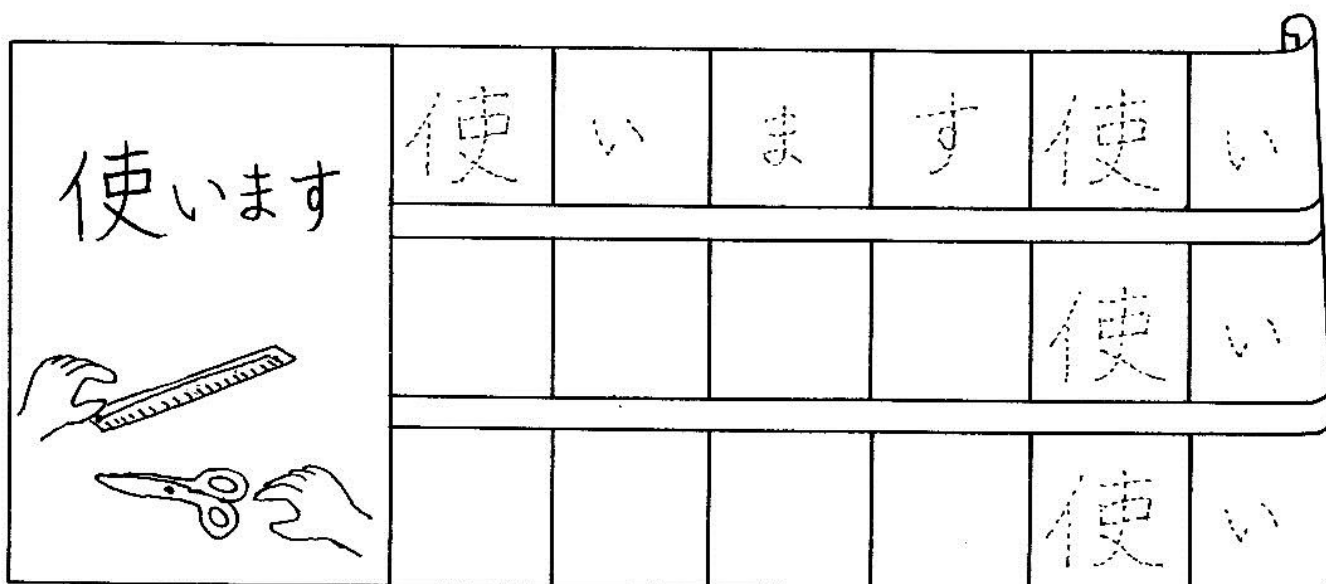 使います
使います使い
使い
使い